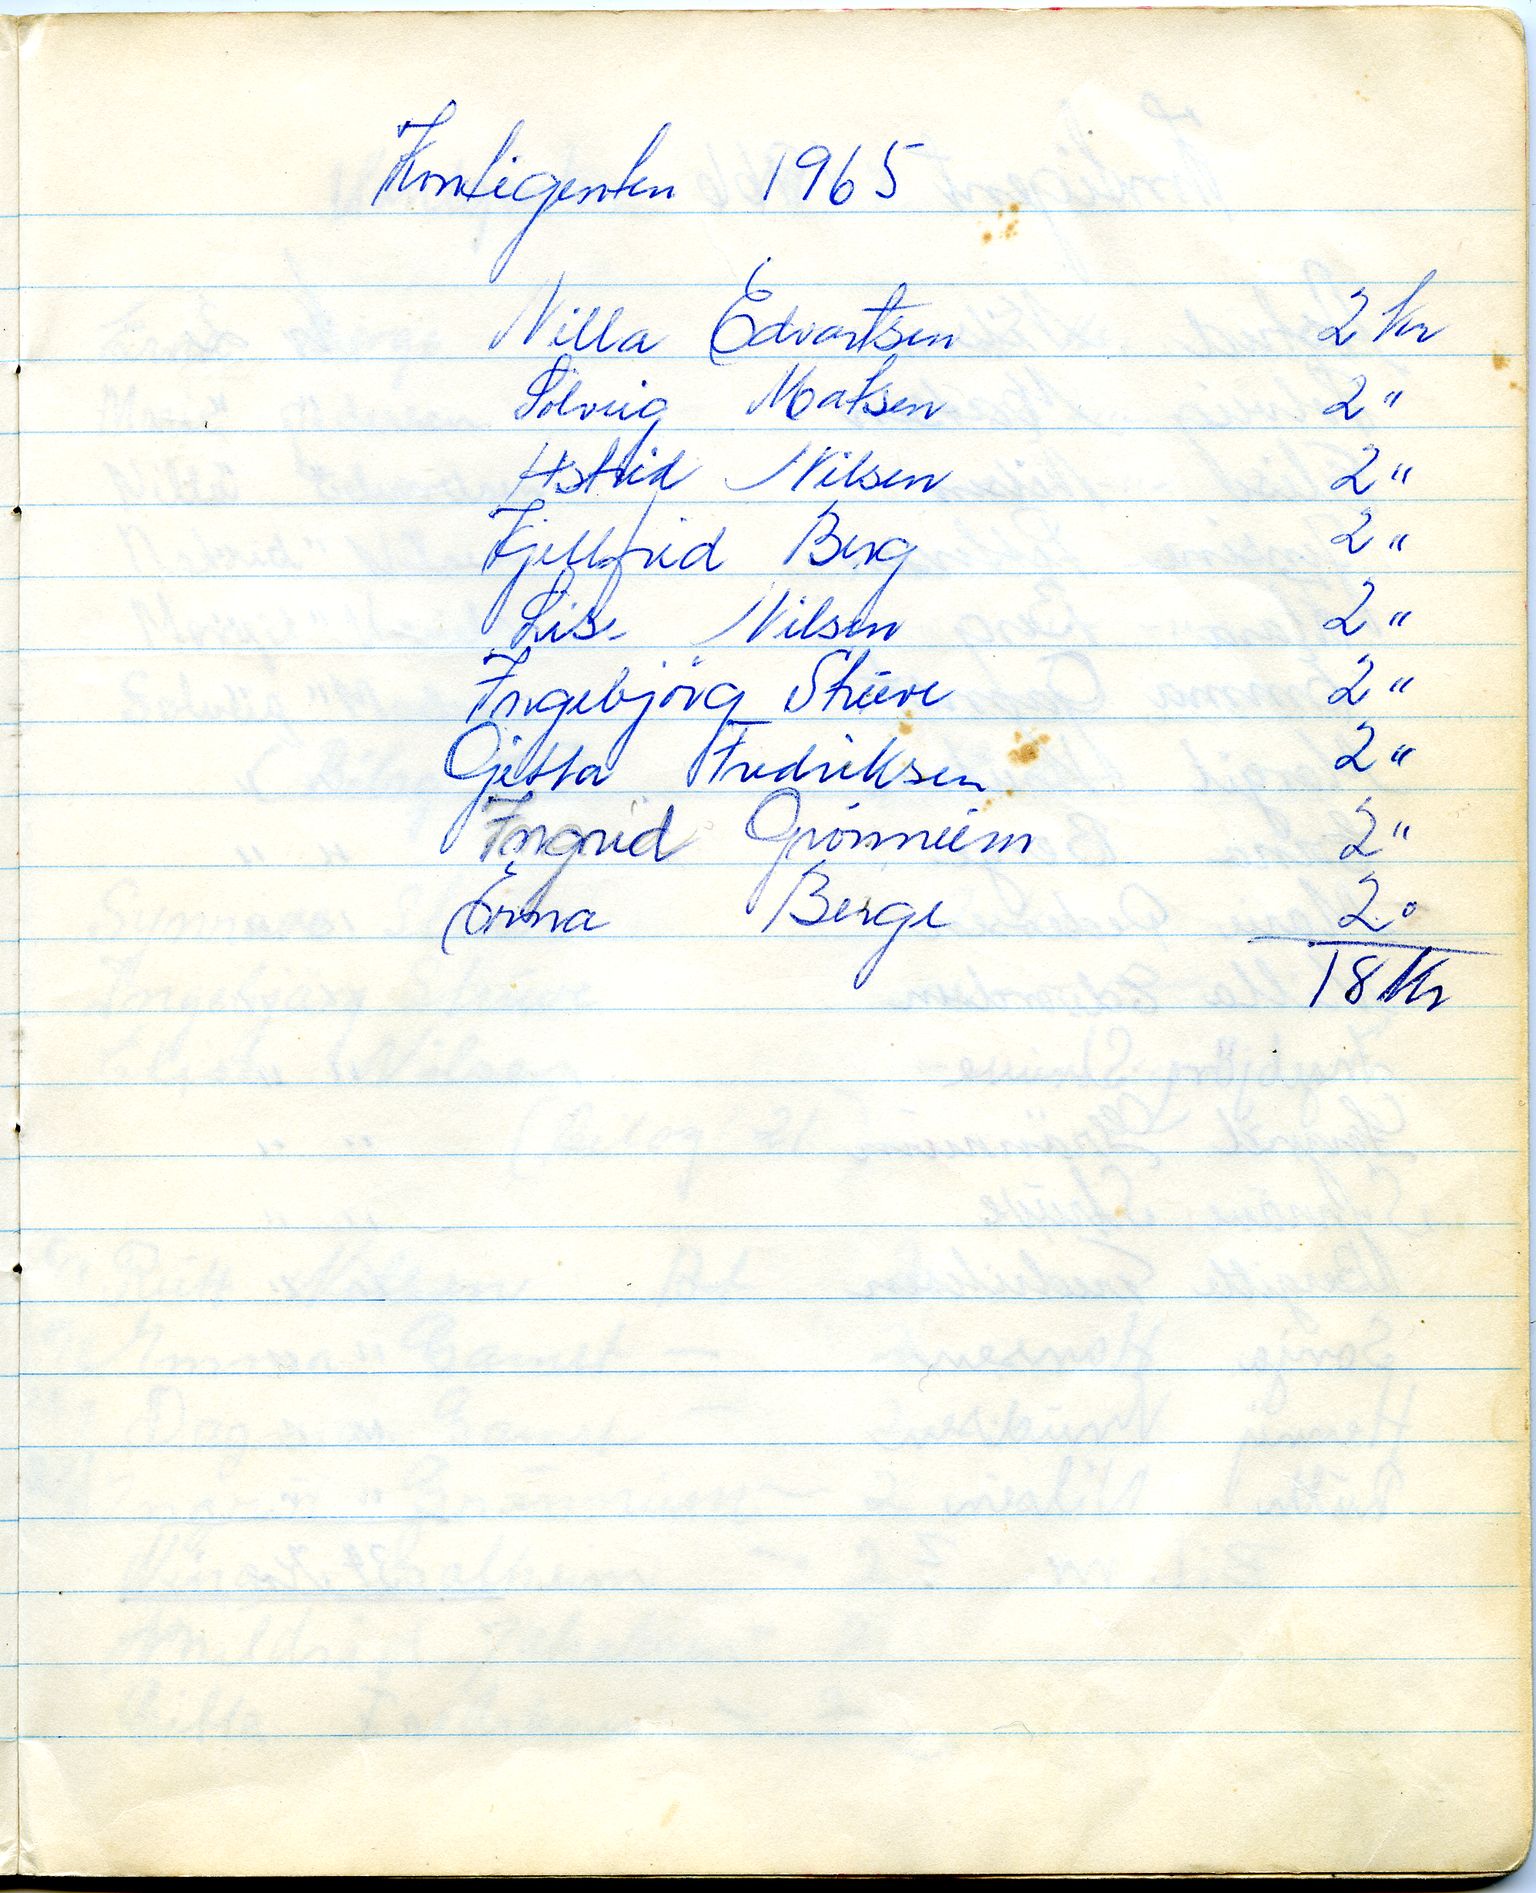 Kontigenten 1965
Nilla Edvartsen 2 kr
Solveig Matsen 2 "
Astrid Nilsen 2 "
Kjellfrid Berg 2 "
Lise Nilsen 2 "
Ingebjörg Strüve 2 "
Gjitta Fredriksen 2 "
Ingrid Grönneim 2 "
Erna Berge 2 "
18 Kr